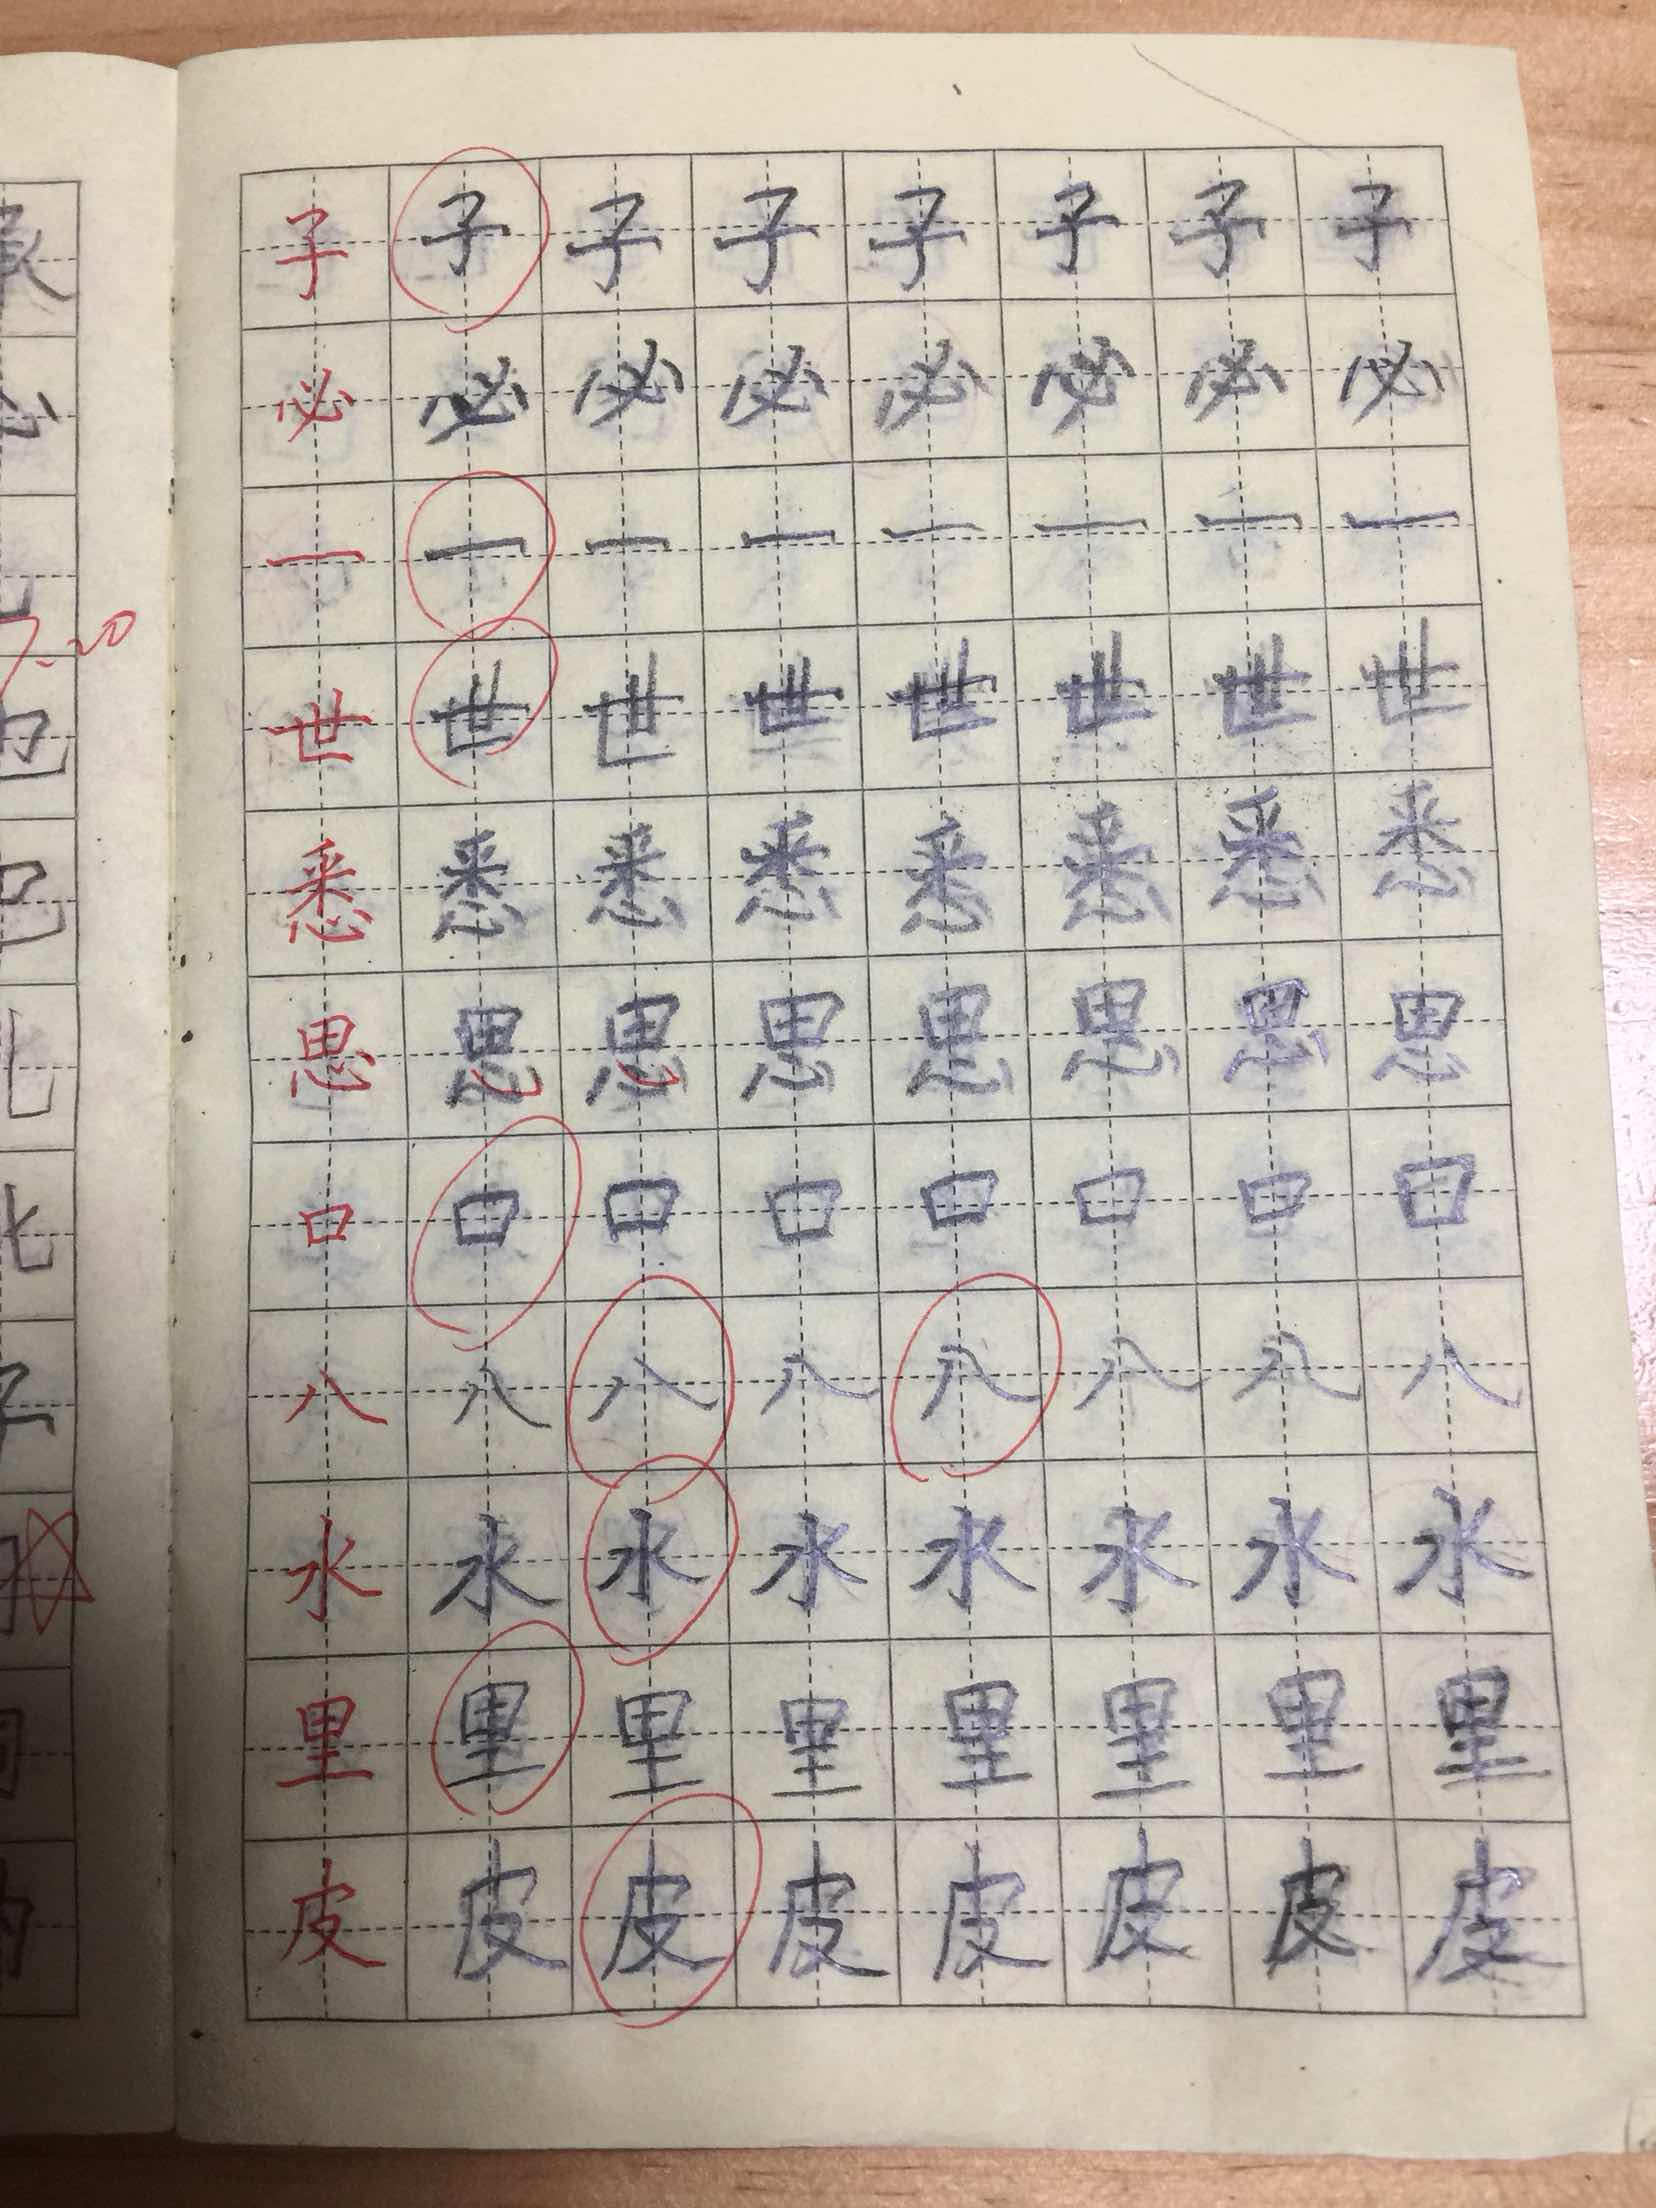 子子子子子子子子
必必必必必必必必
一一一一一一一一
世世世世世世世世
悉悉悉悉悉悉悉悉
思思思思思思思思
口口口口口口口口
八八八八八八八八
水水水水水水水水
里里里里里里里里
皮皮皮皮皮皮皮皮